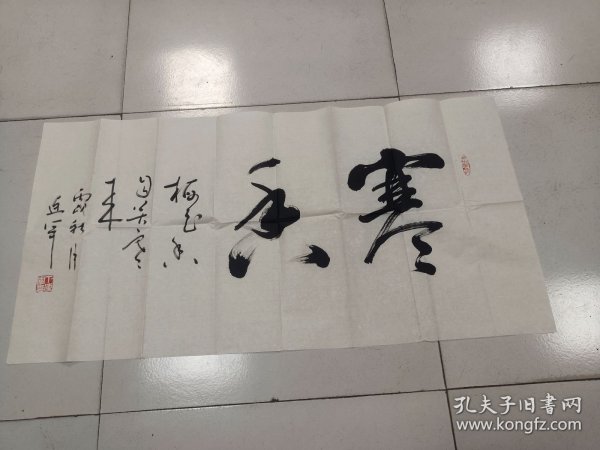 寒香
梅花香
自苦寒
来
丙戌秋月
近军
孔夫子旧书网
www.kongfz.com